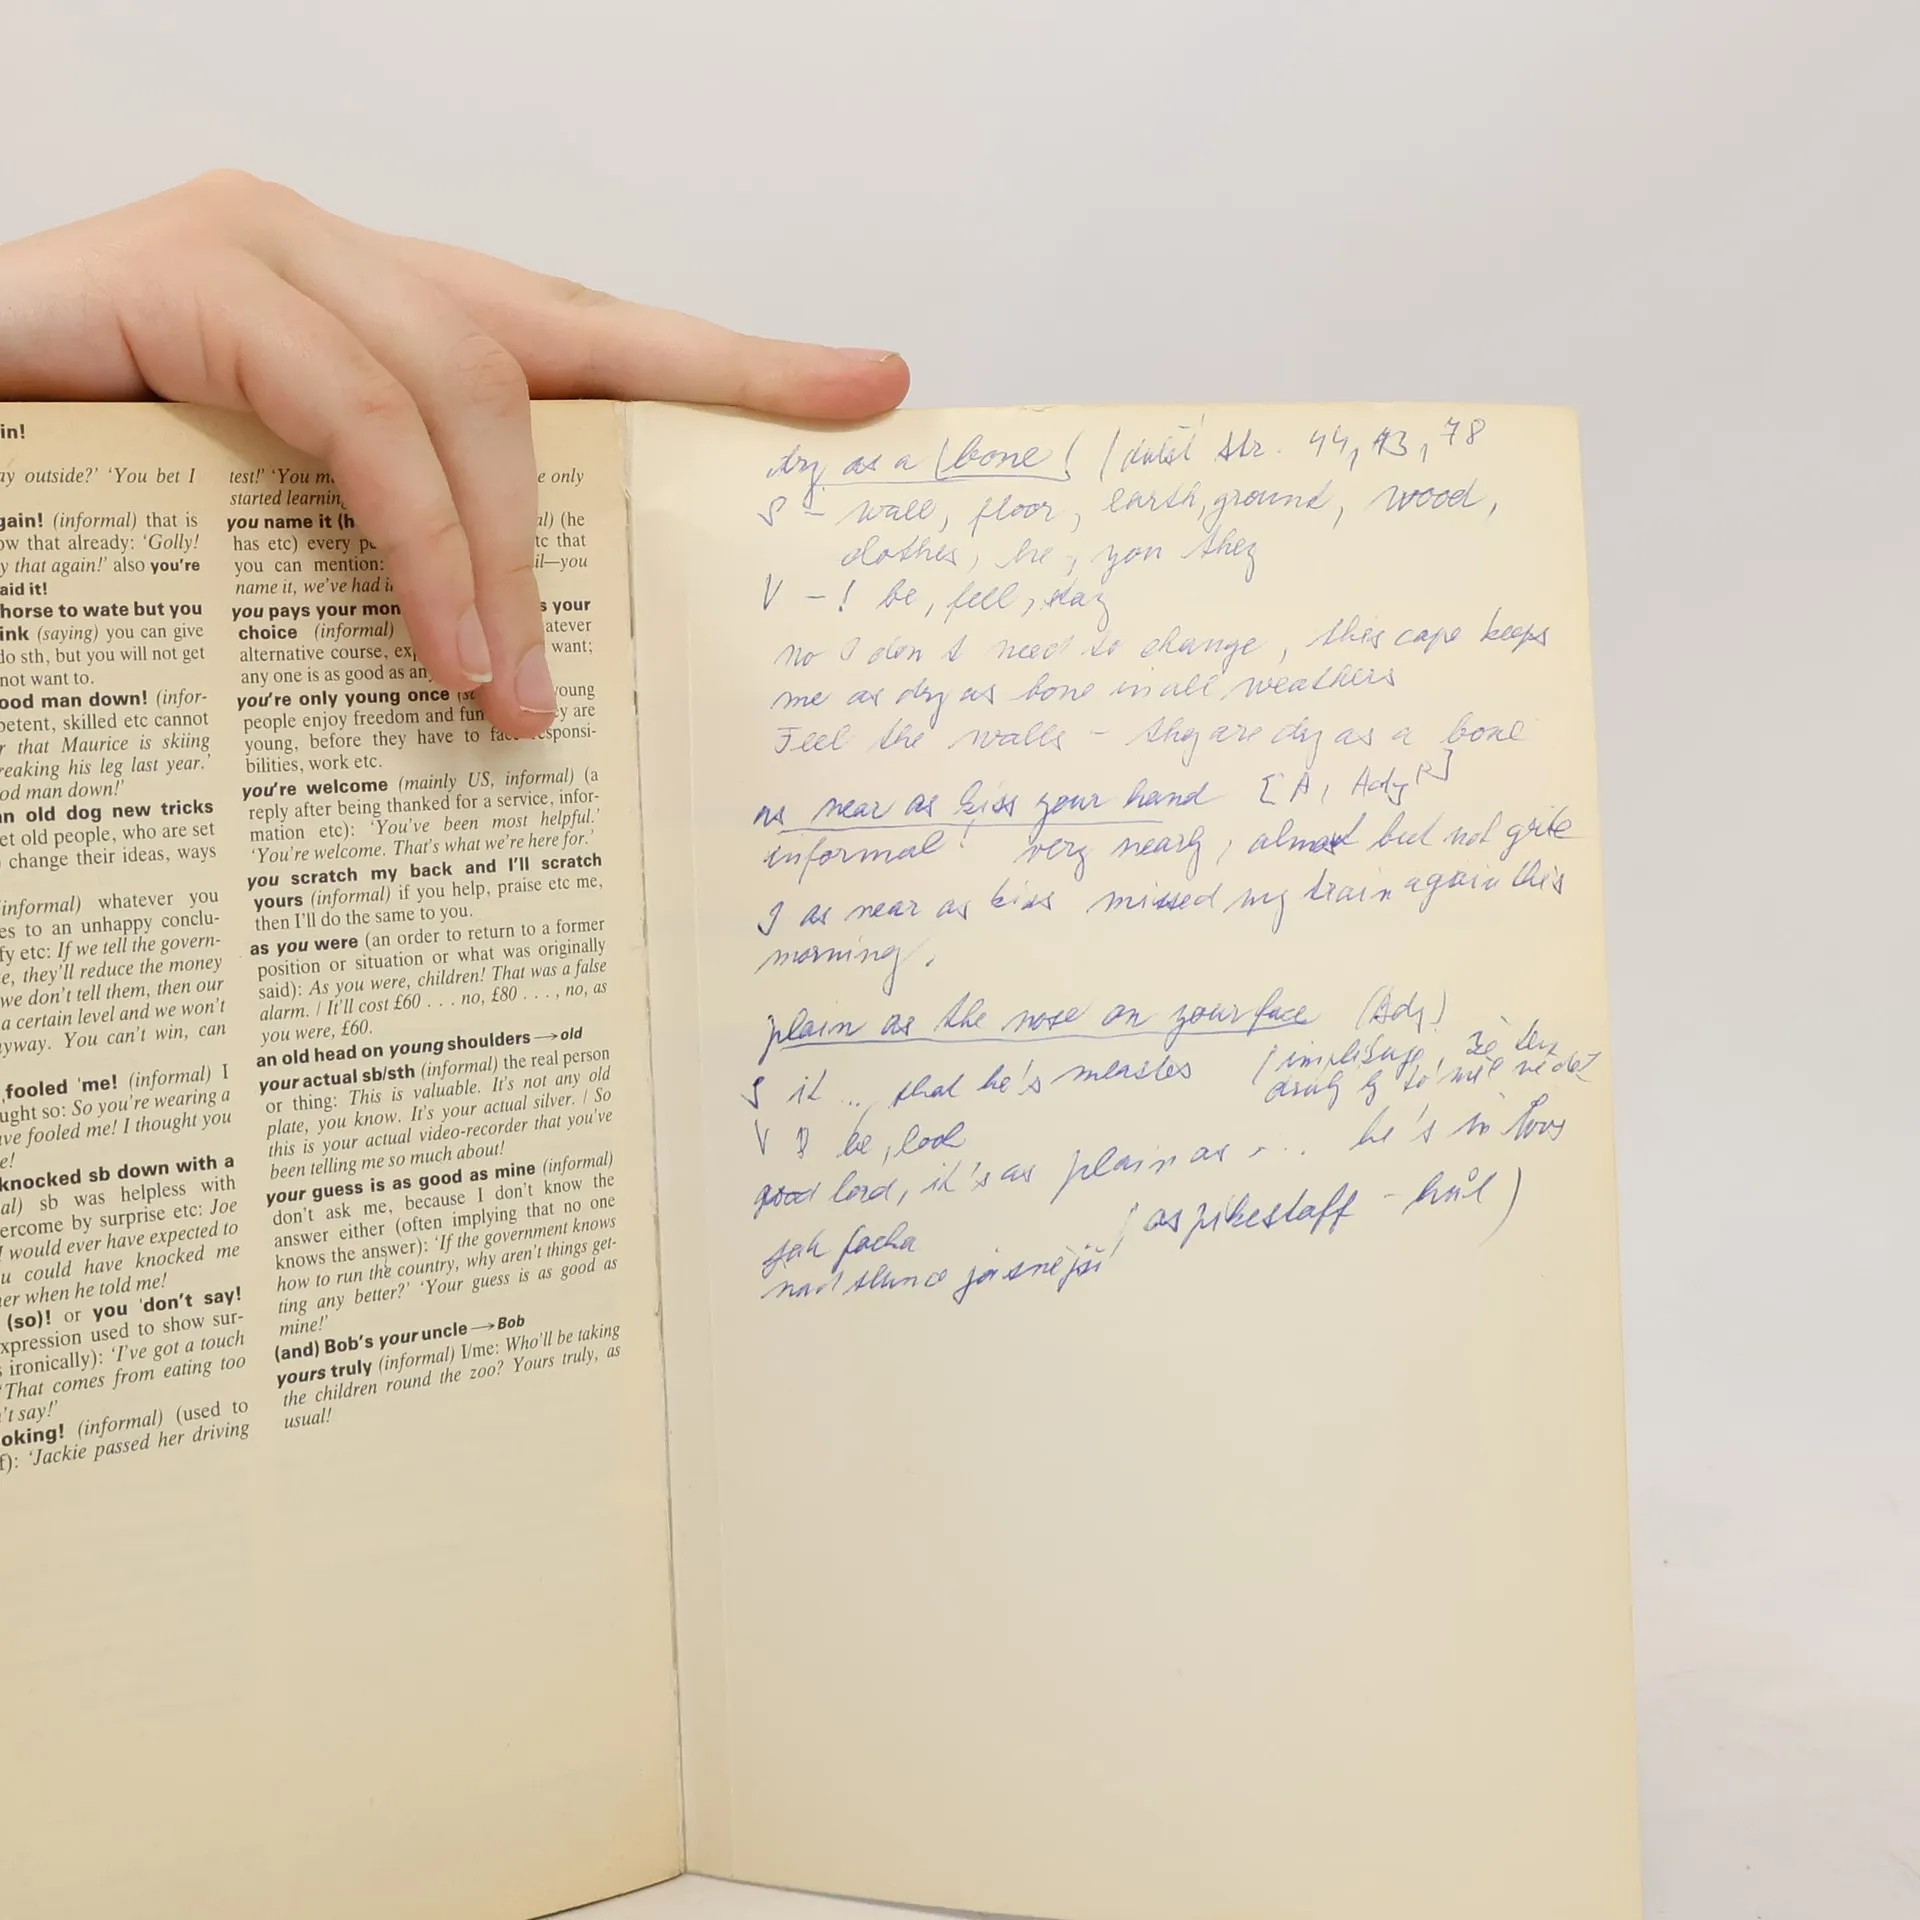 in!
ay outside?' 'You bet I
gain! (informal) that is
ow that already: 'Golly!
y that again!' also you're
aid it!
horse to wate but you
ink (saying) you can give
do sth, but you will not get
not want to.
ood man down! (infor-
petent, skilled etc cannot
r that Maurice is skiing
reaking his leg last year.'
od man down!'
an old dog new tricks
et old people, who are set
change their ideas, ways
informal) whatever you
es to an unhappy conclu-
fy etc: If we tell the govern-
e, they'll reduce the money
we don't tell them, then our
a certain level and we won't
nyway. You can't win, can
fooled 'me! (informal) I
ught so: So you're wearing a
ave fooled me! I thought you
e!
knocked sb down with a
al) sb was helpless with
ercome by surprise etc: Joe
I would ever have expected to
u could have knocked me
her when he told me!
(so)! or you 'don't say!
xpression used to show sur-
s ironically): 'I've got a touch
'That comes from eating too
't say!'
oking! (informal) (used to
f): 'Jackie passed her driving
test!' 'You m e only
started learning
you name it (h al) (he
has etc) every pe tc that
you can mention: il—you
name it, we've had i
you pays your mon s your
choice (informal) atever
alternative course, exp want;
any one is as good as any
you're only young once (s young
people enjoy freedom and fun ey are
young, before they have to face responsi-
bilities, work etc.
you're welcome (mainly US, informal) (a
reply after being thanked for a service, infor-
mation etc): 'You've been most helpful.'
'You're welcome. That's what we're here for.'
you scratch my back and I'll scratch
yours (informal) if you help, praise etc me,
then I'll do the same to you.
as you were (an order to return to a former
position or situation or what was originally
said): As you were, children! That was a false
alarm. / It'll cost £60 . . . no, £80 . . . , no, as
you were, £60.
an old head on young shoulders → old
your actual sb/sth (informal) the real person
or thing: This is valuable. It's not any old
plate, you know. It's your actual silver. / So
this is your actual video-recorder that you've
been telling me so much about!
your guess is as good as mine (informal)
don't ask me, because I don't know the
answer either (often implying that no one
knows the answer): 'If the government knows
how to run the country, why aren't things get-
ting any better?' 'Your guess is as good as
mine!'
(and) Bob's your uncle → Bob
yours truly (informal) I/me: Who'll be taking
the children round the zoo? Yours truly, as
usual!
dry as a (bone) (další str. 44, 43, 78
S – wall, floor, earth, ground, wood,
clothes, he, you they
V – ! be, feel, stay
no I don't need to change, this cape keeps
me as dry as bone in all weathers
Feel the walls – they are dry as a bone
as near as kiss your hand [A, Adj P]
informal! very nearly, almost but not qite
I as near as kiss missed my train again this
morning.
plain as the nose on your face (Adj)
S it ... that he's measles (implikuje, že ten
druhý by to měl vědět
V be, look
good lord, it's as plain as ... he's in love
jak facka (as pikestaff – hůl)
nad slunce jasnější